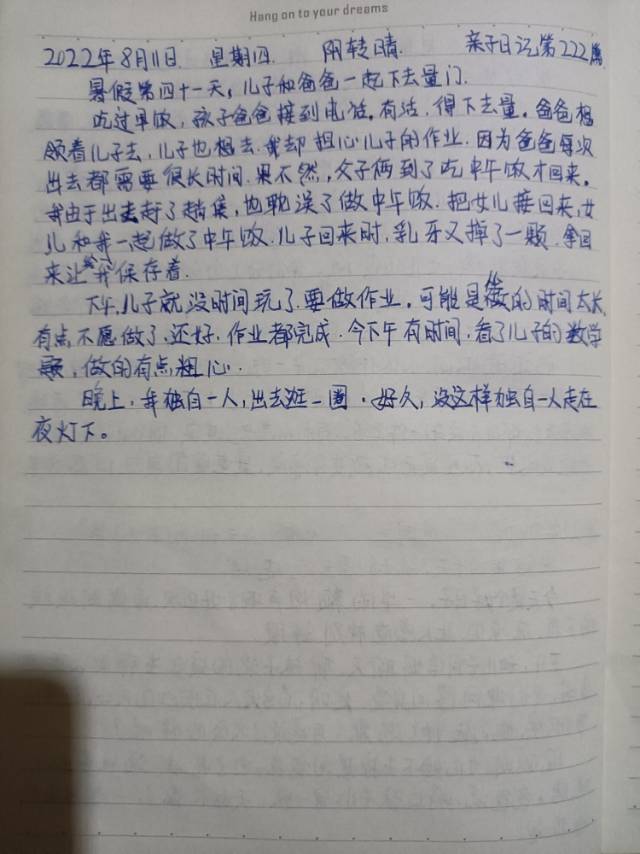 Hang on to your dreams
2022年8月11日 星期四 阴转晴 亲子日记第222篇
暑假第四十一天,儿子和爸爸一起下去量门.
吃过早饭,孩子爸爸接到电话,有活,得下去量.爸爸想
领着儿子去,儿子也想去.我却担心儿子的作业.因为爸爸每次
出去都需要很长时间.果不然,父子俩到了吃中午饭才回来.
我由于出去赶了趟集,也耽误了做中午饭.把女儿接回来,女
儿和我一起做了中午饭.儿子回来时,乳牙又掉了一颗.拿回
来让我保存着.
下午,儿子就没时间玩了.要做作业,可能是做的时间太长,
有点不愿做了.还好.作业都完成.今下午有时间,看了儿子的数学
题,做的有点粗心.
晚上.我独自一人,出去逛一圈.好久,没这样独自一人走在
夜灯下。